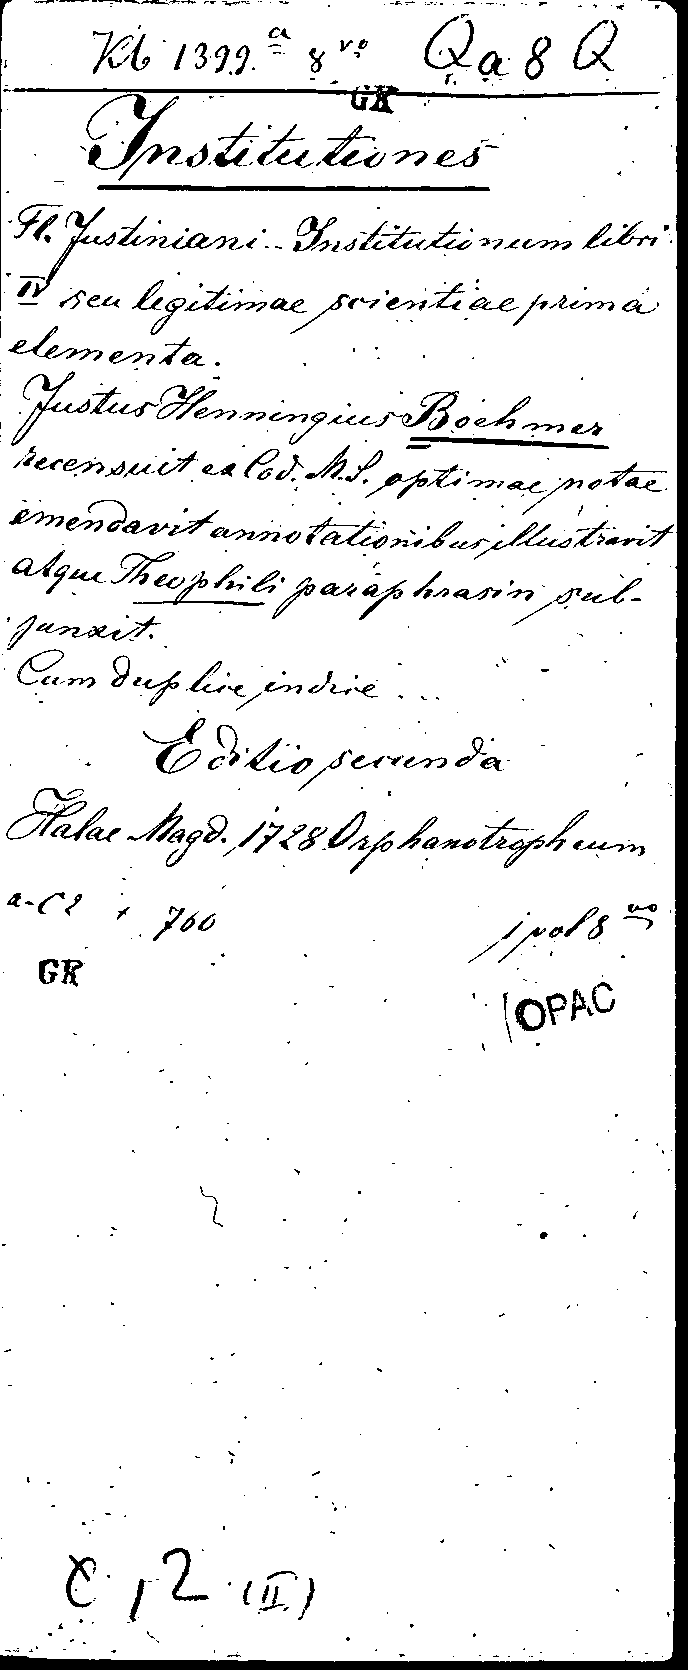 Kb 1399.a 8vo Qa 8 Q
GK
Institutiones
Fl. Justiniani.. Institutionum libri
IV seu legitimae scientiae prima
elementa.
Justus Henningius Boehmer
recensuit ex Cod. M.S. optimae notae
emendavit annotationibus illustravit
atque Theophili paraphrasin sub-
junxit.
Cum duplice indice ...
Editio secunda
Halae Magd. 1728 Orphanotropheum
a-c2 + 760 1 vol 8vo
GK
OPAC
C, 2 (II)